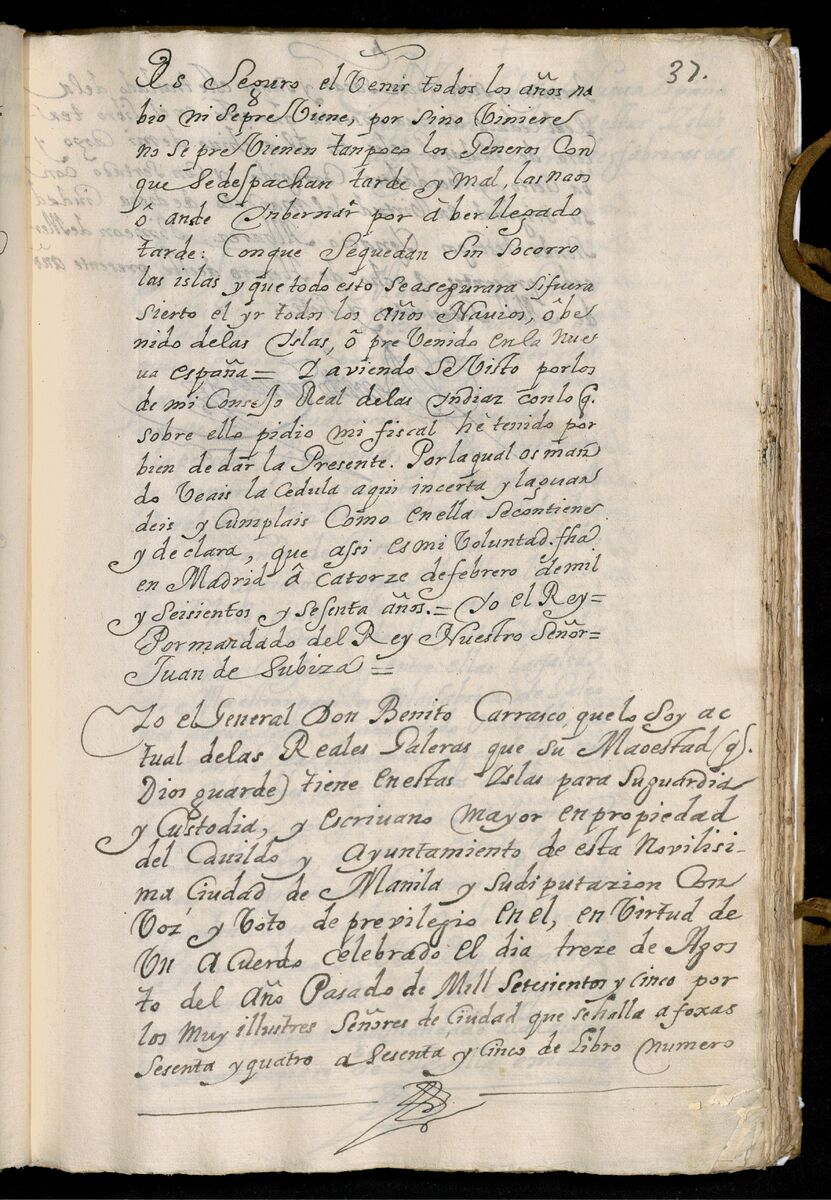 37.
Es Seguro el Venir todos los años na
bio ni se pre Viene, por sino Viniere
no se pre Vienen tanpoco los Generos Con
que Sedespachan tarde y mal, las naos
ô ande Ynbernar por â ber llegado
tarde: Conque Sequedan Sin Socorro
las islas y que todo esto Se asegurara sifuera
Sierto el yr todos los años Navios, ô be
nido de las Yslas, ô pre Venido en la Nue
ua españa = Y aviendo Se Visto por los
de mi Consejo Real delas Yndias con lo q.
sobre ello pidio mi fiscal hè tenido por
bien de dar la Presente. Por la qual os man
do Veais la Cedula aqui incerta y la guar
deis y Cumplais Como en ella Se contiene
y declara, que assi es mi Voluntad. fha
en Madrid â Catorze de febrero de mil
y Seisientos y Sesenta años. = Yo el Rey =
Por mandado del Rey Nuestro Señor =
Juan de Subiza =
Yo el General Don Benito Carrasco, que lo Soy ac
tual delas Reales Galeras que su Magestad (q.
Dios guarde) tiene en estas Yslas para Su guardia
y Custodia, y escrivano Mayor en propiedad
del Cavildo y Ayuntamiento de esta Novilisi-
ma Ciudad de Manila y su diputazion Con
Voz y Voto de previlegio en el, en Virtud de
Vn A Cuerdo celebrado el dia treze de Agos
to del Año Pasado de Mill Setesientos y cinco por
los Muy illustres Señores de Ciudad que se halla a foxas
Sesenta y quatro a Sesenta y Cinco de Libro numero